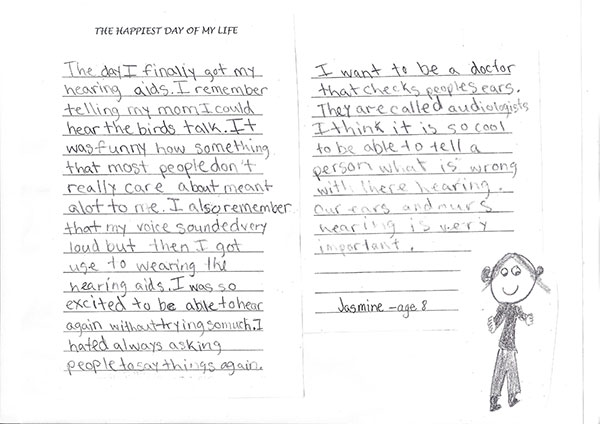 THE HAPPIEST DAY OF MY LIFE
The day I finally got my
hearing aids. I remember
telling my mom I could
hear the birds talk. It
was funny how something
that most people don't
really care about meant
alot to me. I also remember
that my voice sounded very
loud but then I got
use to wearing the
hearing aids. I was so
excited to be able to hear
again without trying so much. I
hated always asking
people to say things again.
I want to be a doctor
that checks peoples ears.
They are called audiologists
I think it is so cool
to be able to tell a
person what is wrong
with there hearing.
Our ears and
hearing is very
important.
Jasmine - age 8